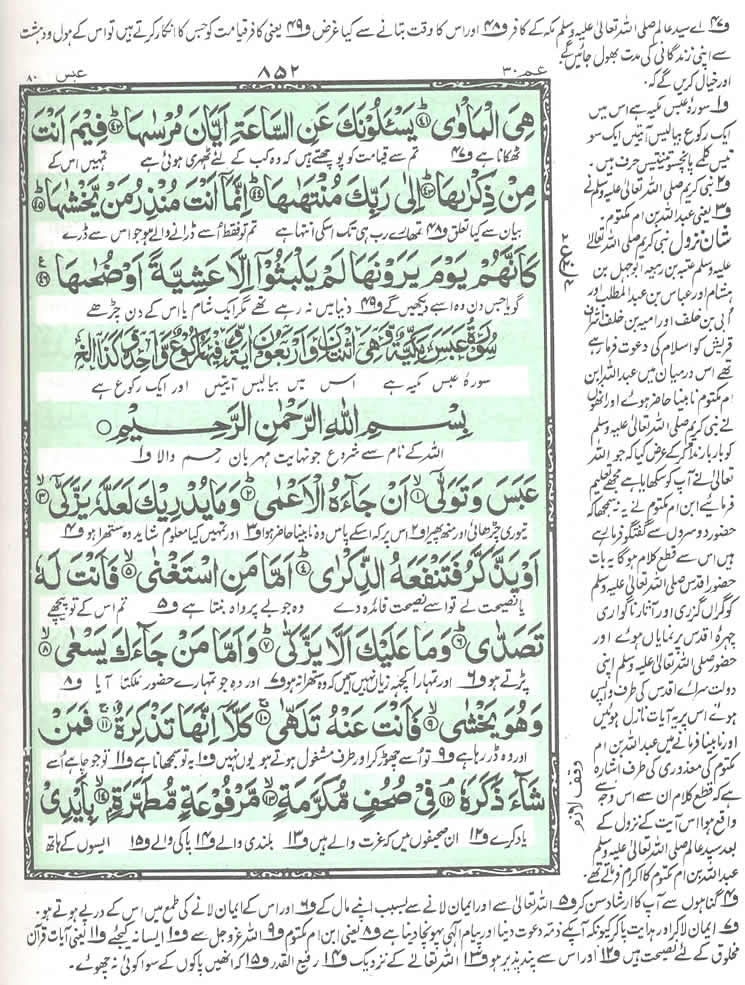 و۴۷ اے سید عالم صلی اللہ تعالیٰ علیہ وسلم مکہ کے کافر و۴۸ اور اس کا وقت بتانے سے کیا غرض و۴۹ یعنی کافر قیامت کو جس کا انکار کرتے ہیں تو اس کے ہول و دہشت
سے اپنی زندگانی کی مدت بھول جائیں گے
اور خیال کریں گے کہ
عبس ۸۰
۸۵۲
عم ۳۰
هِیَ الْمَاْوٰی ﴿۴۱﴾ یَسْـَٔلُوْنَكَ عَنِ السَّاعَةِ اَیَّانَ مُرْسٰىهَا ﴿۴۲﴾ فِیْمَ اَنْتَ
ٹھکانا ہے و۴۷ تم سے قیامت کو پوچھتے ہیں کہ وہ کب کے لئے ٹھہری ہوئی ہے تمہیں اس کے
مِنْ ذِكْرٰىهَا ﴿۴۳﴾ اِلٰی رَبِّكَ مُنْتَهٰىهَا ﴿۴۴﴾ اِنَّمَاۤ اَنْتَ مُنْذِرُ مَنْ یَّخْشٰىهَا ﴿۴۵﴾
بیان سے کیا تعلق و۴۸ تمہارے رب ہی تک اسکی انتہا ہے تم تو فقط اُسے ڈرانے والے ہو جو اس سے ڈرے
كَاَنَّهُمْ یَوْمَ یَرَوْنَهَا لَمْ یَلْبَثُوْۤا اِلَّا عَشِیَّةً اَوْ ضُحٰىهَا ﴿۴۶﴾
گویا جس دن وہ اسے دیکھیں گے و۴۹ دنیا میں نہ رہے تھے مگر ایک شام یا اس کے دن چڑھے
سُوْرَةُ عَبَسَ مَكِّیَّةٌ وَّهِیَ اثْنَتَانِ وَاَرْبَعُوْنَ اٰیَةً وَّفِیْهَا رُكُوْعٌ وَّاحِدٌ
سورہ عبس مکیہ ہے اس میں بیالیس آیتیں اور ایک رکوع ہے
بِسْمِ اللّٰهِ الرَّحْمٰنِ الرَّحِیْمِ
اللہ کے نام سے شروع جو نہایت مہربان رحم والا و۱
عَبَسَ وَتَوَلّٰۤی ﴿۱﴾ اَنْ جَآءَهُ الْاَعْمٰی ﴿۲﴾ وَمَا یُدْرِیْكَ لَعَلَّهٗ یَزَّكّٰۤی ﴿۳﴾
تیوری چڑھائی اور منھ پھیرا و۲ اس پر کہ اسکے پاس وہ نابینا حاضر ہوا و۳ اور تمہیں کیا معلوم شاید وہ ستھرا ہو و۴
اَوْ یَذَّكَّرُ فَتَنْفَعَهُ الذِّكْرٰی ﴿۴﴾ اَمَّا مَنِ اسْتَغْنٰی ﴿۵﴾ فَاَنْتَ لَهٗ
یا نصیحت لے تو اسے نصیحت فائدہ دے وہ جو بے پرواہ بنتا ہے و۵ تم اس کے تو پیچھے
تَصَدّٰی ﴿۶﴾ وَمَا عَلَیْكَ اَلَّا یَزَّكّٰی ﴿۷﴾ وَاَمَّا مَنْ جَآءَكَ یَسْعٰی ﴿۸﴾
پڑتے ہو و۶ اور تمہارا کچھ زیاں نہیں اس میں کہ وہ ستھرا نہ ہو و۷ اور وہ جو تمہارے حضور ملکتا آیا و۸
وَهُوَ یَخْشٰی ﴿۹﴾ فَاَنْتَ عَنْهُ تَلَهّٰی ﴿۱۰﴾ كَلَّاۤ اِنَّهَا تَذْكِرَةٌ ﴿۱۱﴾ فَمَنْ
اور وہ ڈر رہا ہے و۹ تو اُسے چھوڑ کر اور طرف مشغول ہوتے ہو یوں نہیں و۱۰ یہ تو سمجھانا ہے و۱۱ تو جو چاہے اُسے
شَآءَ ذَكَرَهٗ ﴿۱۲﴾ فِیْ صُحُفٍ مُّكَرَّمَةٍ ﴿۱۳﴾ مَّرْفُوْعَةٍ مُّطَهَّرَةٍۭ ﴿۱۴﴾ بِاَیْدِیْ
یاد کرے و۱۲ ان صحیفوں میں کہ عزت والے ہیں و۱۳ بلندی والے و۱۴ پاکی والے و۱۵ ایسوں کے ہاتھ
و۱ سورۂ عبس مکیہ ہے اس میں
ایک رکوع بیالیس آیتیں ایک سو
تیس کلمے پانچسو تینتیس حرف ہیں۔
و۲ نبی کریم صلی اللہ تعالیٰ علیہ وسلم نے
و۳ یعنی عبداللہ بن ام مکتوم۔
شان نزول نبی کریم صلی اللہ تعالیٰ
علیہ وسلم عتبہ بن ربیعہ ابوجہل بن
ہشام اور عباس بن عبدالمطلب اور
اُبی بن خلف اور امیہ بن خلف اشراف
قریش کو اسلام کی دعوت فرما رہے
تھے اس درمیان میں عبداللہ ابن
ام مکتوم نابینا حاضر ہوئے اور انھوں
نے نبی کریم صلی اللہ تعالیٰ علیہ وسلم
کو بار بار ندا کر کے عرض کیا کہ جو اللہ
تعالیٰ نے آپ کو سکھایا ہے مجھے تعلیم
فرمائیے ابن ام مکتوم نے یہ نہ سمجھا کہ
حضور دوسروں سے گفتگو فرما رہے
ہیں اس سے قطع کلام ہو گا یہ بات
حضور اقدس صلی اللہ تعالیٰ علیہ وسلم
کو گراں گزری اور آثار ناگواری
چہرۂ اقدس پر نمایاں ہوئے اور
حضور صلی اللہ تعالیٰ علیہ وسلم اپنی
دولت سرائے اقدس کی طرف واپس
ہوئے اس پر یہ آیات نازل ہوئیں
اور نابینا فرمانے میں عبداللہ بن ام
مکتوم کی معذوری کی طرف اشارہ
ہے کہ قطع کلام ان سے اس وجہ سے
واقع ہوا اس آیت کے نزول کے
بعد سید عالم صلی اللہ تعالیٰ علیہ وسلم
عبداللہ بن ام مکتوم کا اکرام فرماتے تھے۔
وقف لازم
و۴ گناہوں سے آپ کا ارشاد سن کر و۵ اللہ تعالیٰ سے اور ایمان لانے سے بسبب اپنے مال کے و۶ اور اس کے ایمان لانے کی طمع میں اس کے درپے ہوتے ہو۔
و۷ ایمان لا کر اور ہدایت پا کر کیونکہ آپ کے ذمہ دعوت دینا اور پیام الٰہی پہونچا دینا ہے و۸ یعنی ابن ام مکتوم و۹ اللہ عزوجل سے و۱۰ ایسا نہ کیجئے و۱۱ یعنی آیات قرآن
مخلوق کے لئے نصیحت ہیں و۱۲ اور اس سے پند پذیر ہو و۱۳ اللہ تعالیٰ کے نزدیک و۱۴ رفیع القدر و۱۵ کہ انھیں پاکوں کے سوا کوئی نہ چھوئے۔